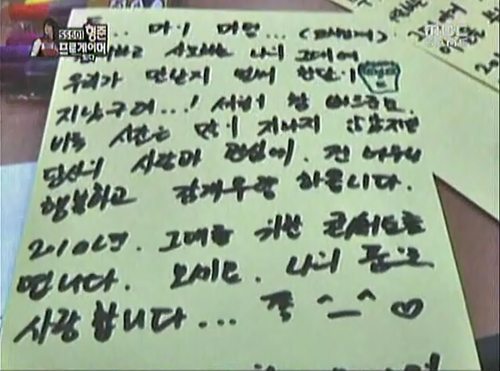 SS501 형준
프로게이머 되다
MBC GAME
... 마이 디어 ...
사모하는 나의 그대여
우리가 만난지 벌써 한달이
지났구려...! 세월 참 빠르군요
비록 시간은 많이 지나지 않았지만
당신의 사랑과 관심에. 전 너무나
행복하고 감개무량 하옵니다.
2010년. 그대를 위한 콘서트를
엽니다. 오세요. 나의 품으로
사랑합니다... 쪽 ^_^ ♡